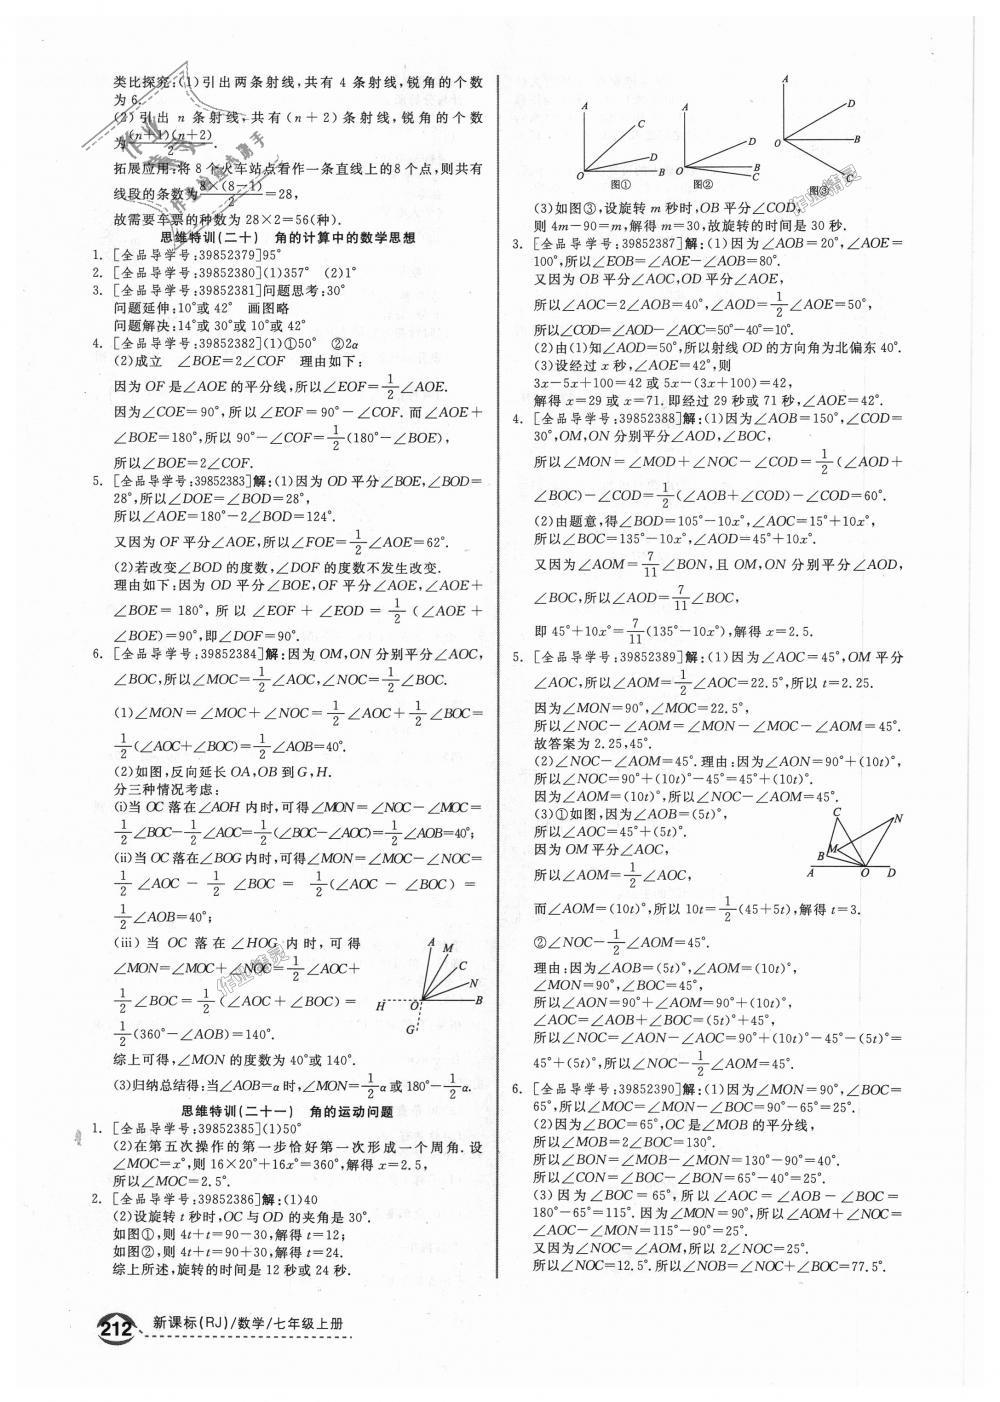 类比探究:(1)引出两条射线,共有 4 条射线,锐角的个数
为 6.
(2)引出 n 条射线,共有(n+2)条射线,锐角的个数
为 (n+1)(n+2)/2 .
拓展应用:将 8 个火车站点看作一条直线上的8个点,则共有
线段的条数为 8×(8-1)/2 =28,
故需要车票的种数为 28×2=56(种).
思维特训(二十) 角的计算中的数学思想
1. [全品导学号:39852379]95°
2. [全品导学号:39852380](1)357° (2)1°
3. [全品导学号:39852381]问题思考:30°
问题延伸:10°或 42° 画图略
问题解决:14°或 30°或 10°或 42°
4. [全品导学号:39852382](1)①50° ②2α
(2)成立 ∠BOE=2∠COF 理由如下:
因为 OF 是∠AOE 的平分线,所以∠EOF=1/2∠AOE.
因为∠COE=90°,所以∠EOF=90°-∠COF.而∠AOE+
∠BOE=180°,所以 90°-∠COF=1/2(180°-∠BOE),
所以∠BOE=2∠COF.
5. [全品导学号:39852383]解:(1)因为 OD 平分∠BOE,∠BOD=
28°,所以∠DOE=∠BOD=28°,
所以∠AOE=180°-2∠BOD=124°.
又因为 OF 平分∠AOE,所以∠FOE=1/2∠AOE=62°.
(2)若改变∠BOD 的度数,∠DOF 的度数不发生改变.
理由如下:因为 OD 平分∠BOE,OF 平分∠AOE,∠AOE+
∠BOE=180°,所以∠EOF+∠EOD=1/2(∠AOE+
∠BOE)=90°,即∠DOF=90°.
6. [全品导学号:39852384]解:因为 OM,ON 分别平分∠AOC,
∠BOC,所以∠MOC=1/2∠AOC,∠NOC=1/2∠BOC.
(1)∠MON=∠MOC+∠NOC=1/2∠AOC+1/2∠BOC=
1/2(∠AOC+∠BOC)=1/2∠AOB=40°.
(2)如图,反向延长 OA,OB 到 G,H.
分三种情况考虑:
(ⅰ)当 OC 落在∠AOH 内时,可得∠MON=∠NOC-∠MOC=
1/2∠BOC-1/2∠AOC=1/2(∠BOC-∠AOC)=1/2∠AOB=40°;
(ⅱ)当 OC 落在∠BOG 内时,可得∠MON=∠MOC-∠NOC=
1/2∠AOC-1/2∠BOC=1/2(∠AOC-∠BOC)=
1/2∠AOB=40°;
(ⅲ)当 OC 落在∠HOG 内时,可得
∠MON=∠MOC+∠NOC=1/2∠AOC+
1/2∠BOC=1/2(∠AOC+∠BOC)=
1/2(360°-∠AOB)=140°.
A M C N B O H G
综上可得,∠MON 的度数为 40°或 140°.
(3)归纳总结得:当∠AOB=α 时,∠MON=1/2α 或 180°-1/2α.
思维特训(二十一) 角的运动问题
1. [全品导学号:39852385](1)50°
(2)在第五次操作的第一步恰好第一次形成一个周角.设
∠MOC=x°,则 16×20°+16x°=360°,解得 x=2.5,
所以∠MOC=2.5°.
2. [全品导学号:39852386]解:(1)40
(2)设旋转 t 秒时,OC 与 OD 的夹角是 30°.
如图①,则 4t+t=90-30,解得 t=12;
如图②,则 4t+t=90+30,解得 t=24.
综上所述,旋转的时间是 12 秒或 24 秒.
A C D B O 图①
A D B C O 图②
A D B C O 图③
(3)如图③,设旋转 m 秒时,OB 平分∠COD,
则 4m-90=m,解得 m=30,故旋转的时间是 30 秒.
3. [全品导学号:39852387]解:(1)因为∠AOB=20°,∠AOE=
100°,所以∠EOB=∠AOE-∠AOB=80°.
又因为 OB 平分∠AOC,OD 平分∠AOE,
所以∠AOC=2∠AOB=40°,∠AOD=1/2∠AOE=50°,
所以∠COD=∠AOD-∠AOC=50°-40°=10°.
(2)由(1)知∠AOD=50°,所以射线 OD 的方向角为北偏东 40°.
(3)设经过 x 秒,∠AOE=42°,则
3x-5x+100=42 或 5x-(3x+100)=42,
解得 x=29 或 x=71.即经过 29 秒或 71 秒,∠AOE=42°.
4. [全品导学号:39852388]解:(1)因为∠AOB=150°,∠COD=
30°,OM,ON 分别平分∠AOD,∠BOC,
所以∠MON=∠MOD+∠NOC-∠COD=1/2(∠AOD+
∠BOC)-∠COD=1/2(∠AOB+∠COD)-∠COD=60°.
(2)由题意,得∠BOD=105°-10x°,∠AOC=15°+10x°,
所以∠BOC=135°-10x°,∠AOD=45°+10x°.
又因为∠AOM=7/11∠BON,且 OM,ON 分别平分∠AOD,
∠BOC,所以∠AOD=7/11∠BOC,
即 45°+10x°=7/11(135°-10x°),解得 x=2.5.
5. [全品导学号:39852389]解:(1)因为∠AOC=45°,OM 平分
∠AOC,所以∠AOM=1/2∠AOC=22.5°,所以 t=2.25.
因为∠MON=90°,∠MOC=22.5°,
所以∠NOC-∠AOM=∠MON-∠MOC-∠AOM=45°.
故答案为 2.25,45°.
(2)∠NOC-∠AOM=45°.理由:因为∠AON=90°+(10t)°,
所以∠NOC=90°+(10t)°-45°=45°+(10t)°.
因为∠AOM=(10t)°,所以∠NOC-∠AOM=45°.
(3)①如图,因为∠AOB=(5t)°,
所以∠AOC=45°+(5t)°.
因为 OM 平分∠AOC,
所以∠AOM=1/2∠AOC,
C N B M A O D
而∠AOM=(10t)°,所以 10t=1/2(45+5t),解得 t=3.
②∠NOC-1/2∠AOM=45°.
理由:因为∠AOB=(5t)°,∠AOM=(10t)°,
∠MON=90°,∠BOC=45°,
所以∠AON=90°+∠AOM=90°+(10t)°,
∠AOC=∠AOB+∠BOC=(5t)°+45°,
所以∠NOC=∠AON-∠AOC=90°+(10t)°-45°-(5t)°=
45°+(5t)°,所以∠NOC-1/2∠AOM=45°.
6. [全品导学号:39852390]解:(1)因为∠MON=90°,∠BOC=
65°,所以∠MOC=∠MON-∠BOC=90°-65°=25°.
(2)因为∠BOC=65°,OC 是∠MOB 的平分线,
所以∠MOB=2∠BOC=130°.
所以∠BON=∠MOB-∠MON=130°-90°=40°.
所以∠CON=∠BOC-∠BON=65°-40°=25°.
(3)因为∠BOC=65°,所以∠AOC=∠AOB-∠BOC=
180°-65°=115°.因为∠MON=90°,所以∠AOM+∠NOC=
∠AOC-∠MON=115°-90°=25°.
又因为∠NOC=∠AOM,所以 2∠NOC=25°.
所以∠NOC=12.5°.所以∠NOB=∠NOC+∠BOC=77.5°.
212 新课标(RJ)/数学/七年级上册